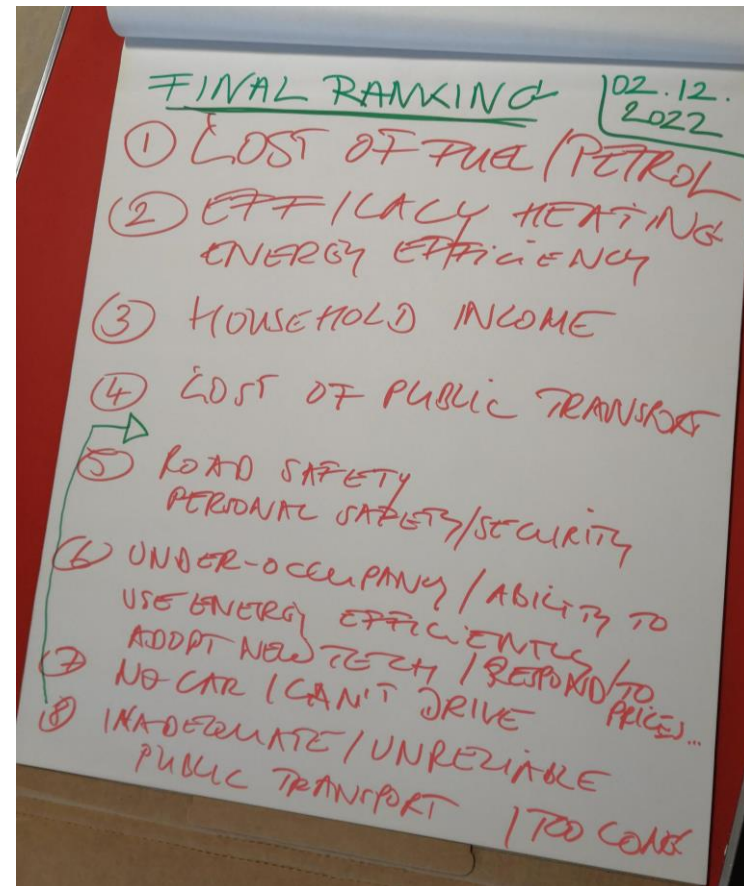 FINAL RANKING
02.12.
2022
① COST OF FUEL / PETROL
② EFFICACY HEATING
ENERGY EFFICIENCY
③ HOUSEHOLD INCOME
④ COST OF PUBLIC TRANSPORT
⑤ ROAD SAFETY
PERSONAL SAFETY/SECURITY
⑥ UNDER-OCCUPANCY / ABILITY TO
USE ENERGY EFFICIENTLY /
ADOPT NEW TECH / RESPOND TO
PRICES...
⑦ NO CAR / CAN'T DRIVE
⑧ INADEQUATE / UNRELIABLE
PUBLIC TRANSPORT / TOO